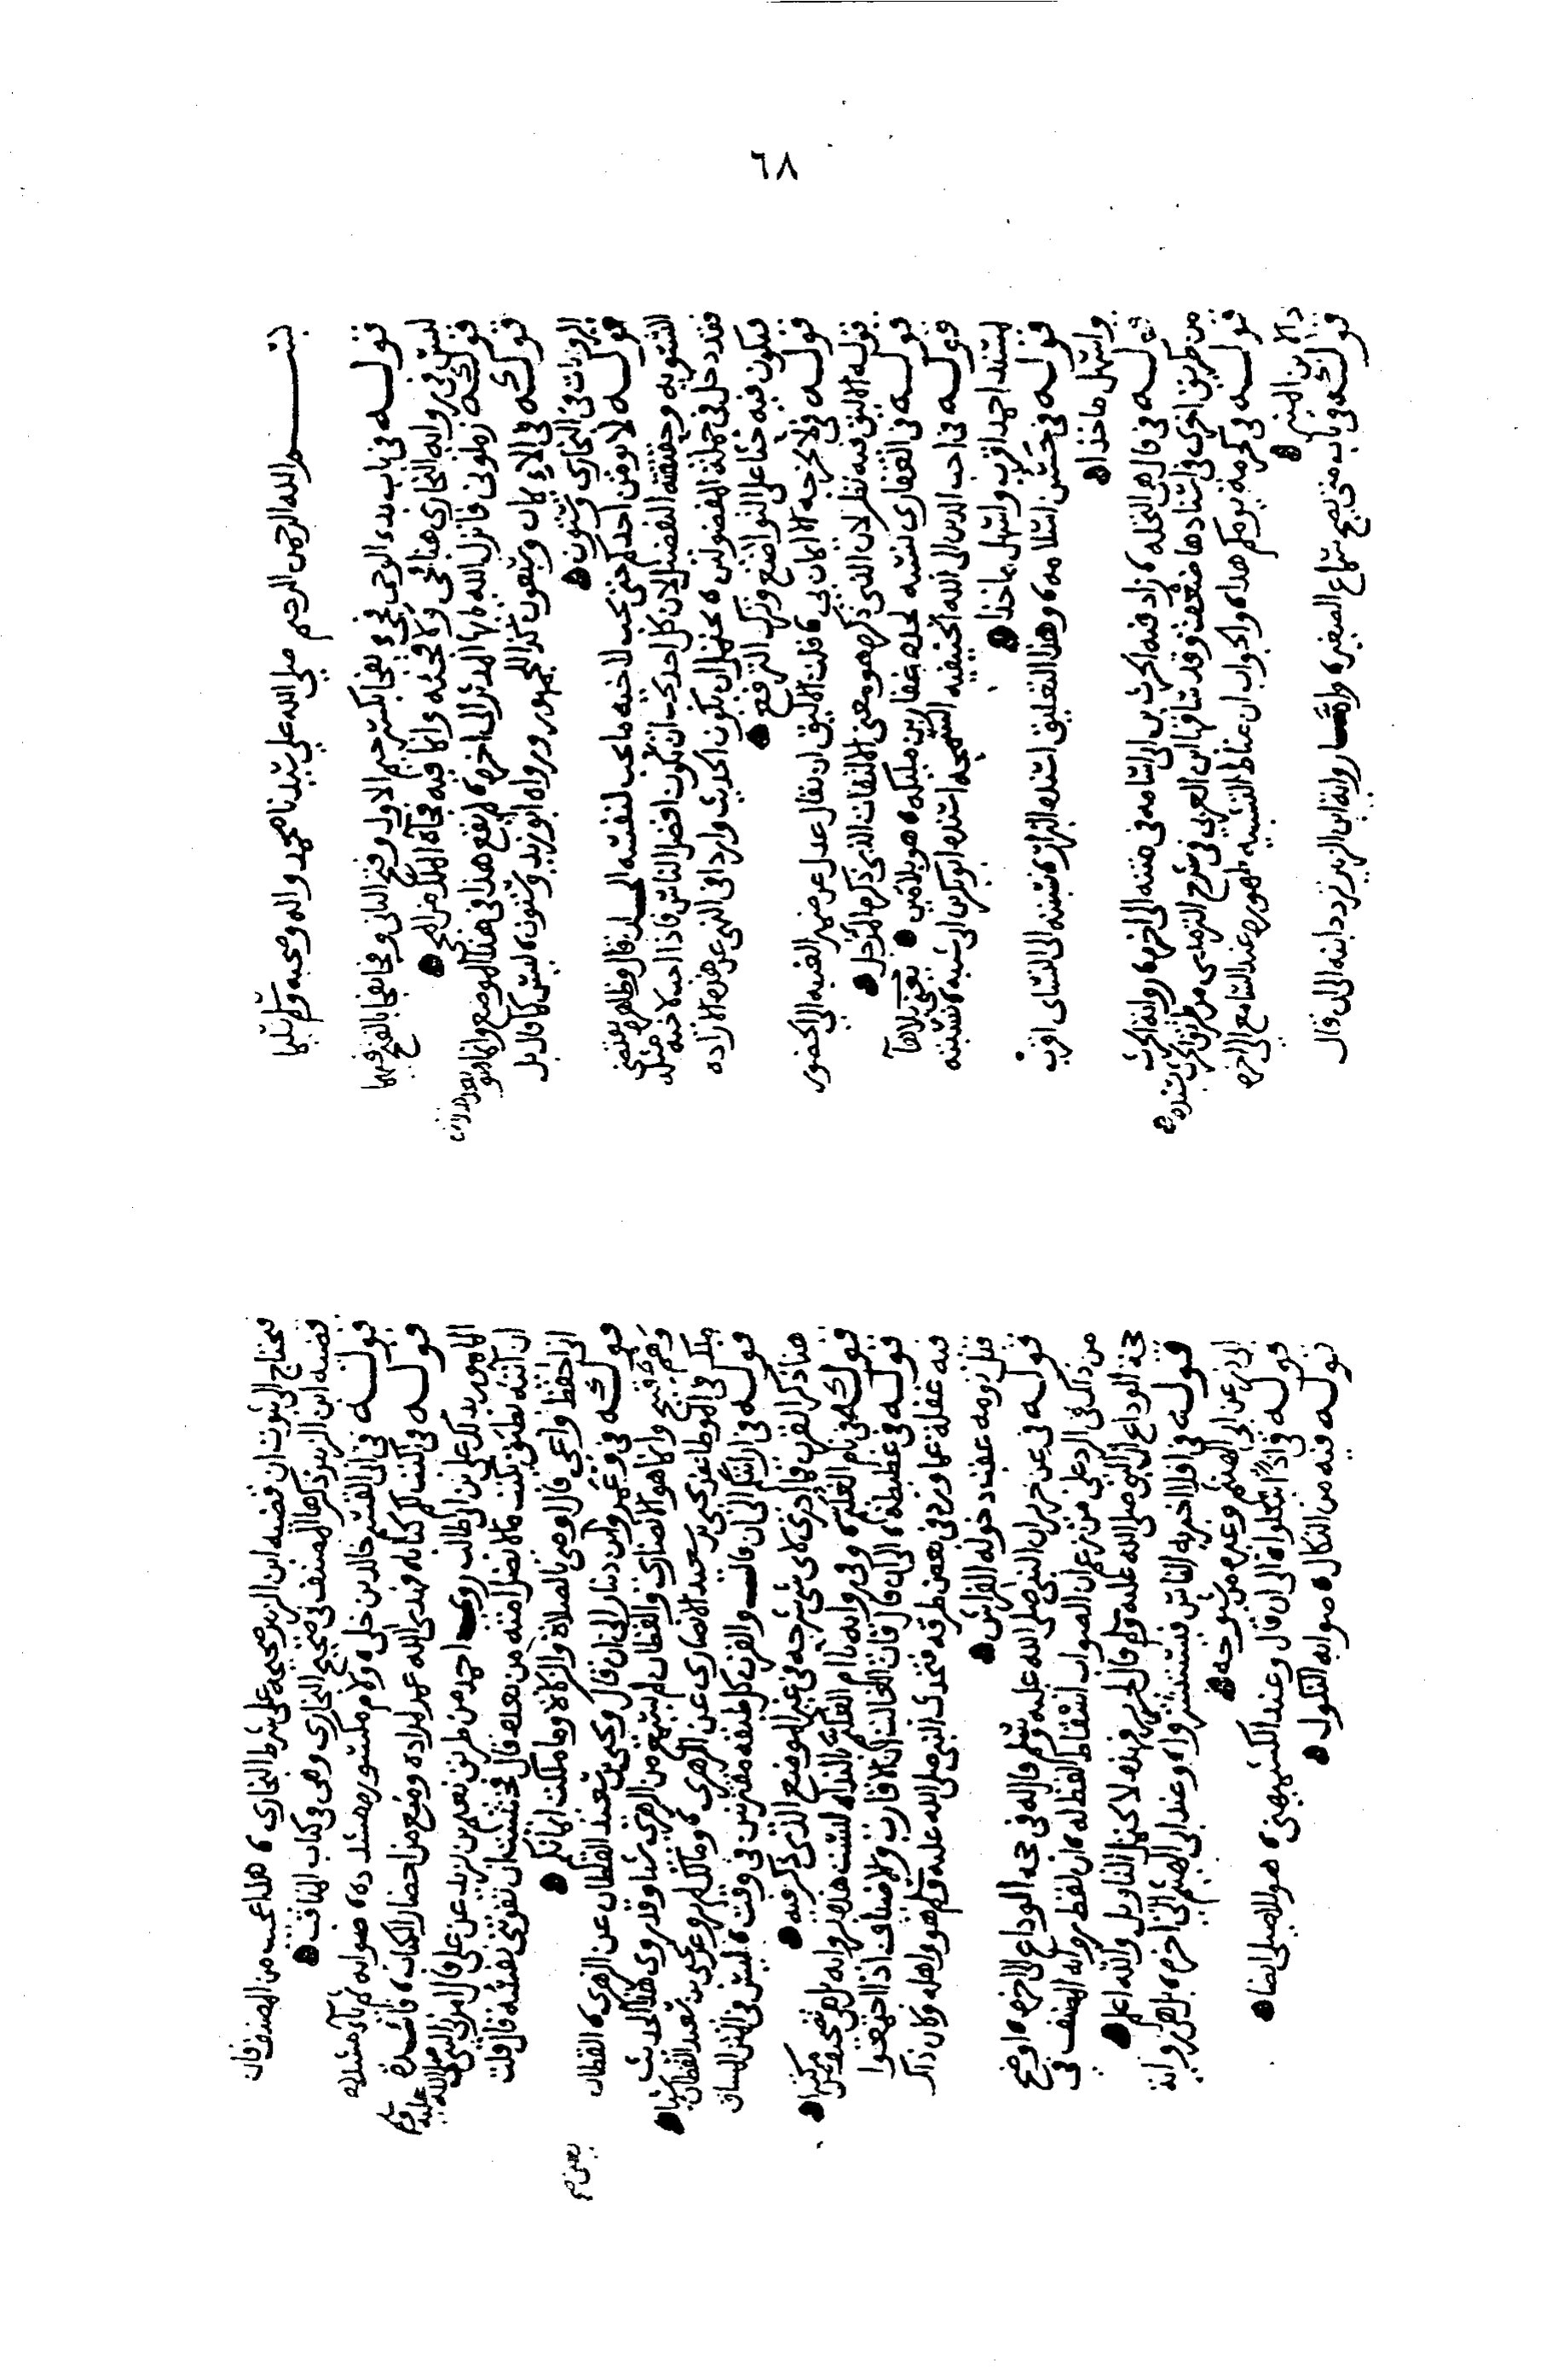 ٦٨
بسم الله الرحمن الرحيم صلى الله على سيدنا محمد واله وصحبه وسلم تسليما
قوله في باب بدء الوحي فجئ يفجا بكسر جيم الاول وفتح الثاني وفجا يفجا بالفتح فيهما
ليس في رواية البخاري هنا فجئ ولا فجئه وانما فيه فجأه الملك من المجي
قوله زملوني فانزل الله يايها المدثر الى اخره، لم يقع هذا في هذا الموضع وانما هو
قوله في الايمان وستون كذا للجمهور ورواه ابو زيد وستون، ليس كما قال بل
الروايات في البخاري وستون
قوله لا يومن احدكم حتى يحب لاخيه ما يحب لنفسه الى ان قال وظاهره يقتضي
التسويه وحقيقته التفضيل لان كل احد يحب ان يكون افضل الناس فاذا احب لاخيه مثله
فقد دخل في جملة المفضولين، يحتمل ان يكون الحديث واردا في النهي عن هذه الارادة
فيكون فيه حثا على التواضع وترك الترفع
قوله في لا يخرجه الا ايمان بي، قلت الاليق ان يقال عدل عن ضمير الغيبه الى الحضور
قوله الاليق فيه نظر لان الذي ذكره هو معنى الالتفات الذي ذكره المؤجل
قوله في الغفاري نسبه لجده غفار بن مليكه، هو بلامين يعني بلا هآ
قوله في احب الدين الى الله الحنيفيه السمحه اسنده ابو بكر بن ابي شيبه، نسبته
لمسند احمد اقرب واسهل ماخذا
قوله في حسن اسلامه، وهذا التعليق اسنده البزار، نسبته الى النساى اقرب
واسهل ماخذا
قوله في قال هي النخله، زاد فيه الحرث بن ابي اسامه في مسنده الى اخره، رواية الحرث
من طريق اخرى في اسنادها ضعف وقد ساقها ابن العربي في شرح الترمذي من طريق الحرث بسنده
قوله في كحرمة يومكم هذا، والجواب ان مناط التشبيه ظهوره عند السامع الى اخره
دلا بن المنير
قوله في باب متى يصح سماع الصغير، واما رواية ابن الزبير تردد ابنه الى ان قال
فيحتاج الى ثبوت ان قضيه ابن الزبير صحيحه على شرط البخاري، هذا عجب من المصنف فان
قضيه ابن الزبير ذكرها المصنف في صحيح البخاري وهي في كتاب المناقب
قوله في ابي القسم خالد بن خلي، ولام مكسوره مشدده، صوابه لم يات مشدده
قوله في اكتب لكم كتابا، فهدى الله عمر لمراده ومنع من احضار الكتاب، فائده
الامور بذلك علي بن ابي طالب روى احمد من طريق نعيم بن يزيد عن علي قال امرني النبي صلى الله عليه وسلم
ان آتيه بطبق يكتب ما لا تضل امته من بعده قال فخشيت ان تفوتني نفسه قال قلت
اني احفظ واعي قال اوصي بالصلاة والزكاة وما ملكت ايمانكم
قوله في وعمرو بن دينار الى ان قال ويحيى بن سعيد القطان عن الزهري، القطان
وهم قبيح وانما هو الانصاري والقطان لم يسمع من الزهري شيئا وقد روى هذا الحديث
ملك في الموطا عن يحيى بن سعيد الانصاري عن الزهري، ومالك لم يرو عن يحيى بن سعيد القطان شيئا
يعني صح
قوله في ارايتكم الى ان قال والقرن كل طبقه مقترنين في وقت، ليس في المتن المساق
هنا ذكر القرن فما ادري لاى شي شرحه في غير الموضع الذي ذكر فيه
قوله في نام الغليم، وفي رواية يا ام الغليم بالندا، ليست هذه رواية بل هي تصحيف
قوله في غطيطه، الى ان قال فان الغالب ان الاقارب والاضياف اذا اجتمعوا
فيه غفلة عما ورد في بعض طرقه فتحدث النبي صلى الله عليه وسلم هو واهله وكان ذاك
قبل نومه عقب دخوله الفراش
قوله في عن جرير ان النبي صلى الله عليه وسلم قال له في حجة الوداع الى اخره، اوضح
من ذاك في الرد على من زعم ان الصواب اسقاط لفظ له، ان لفظ رواية المصنف في
حجة الوداع ان النبي صلى الله عليه وسلم قال لجرير فهذه لا تحتمل التاويل والله اعلم
قوله في افلا اخبر به الناس فيستبشروا، وعند ابي الهيثم الى اخره، بل هي رواية
ابي ذر عن ابي الهيثم وغيره من شيوخه
قوله في اذا يتكلوا، الى ان قال وعند الكشميهني، هو للاصيلي ايضا
قوله فيه من النكال، صوابه النكول